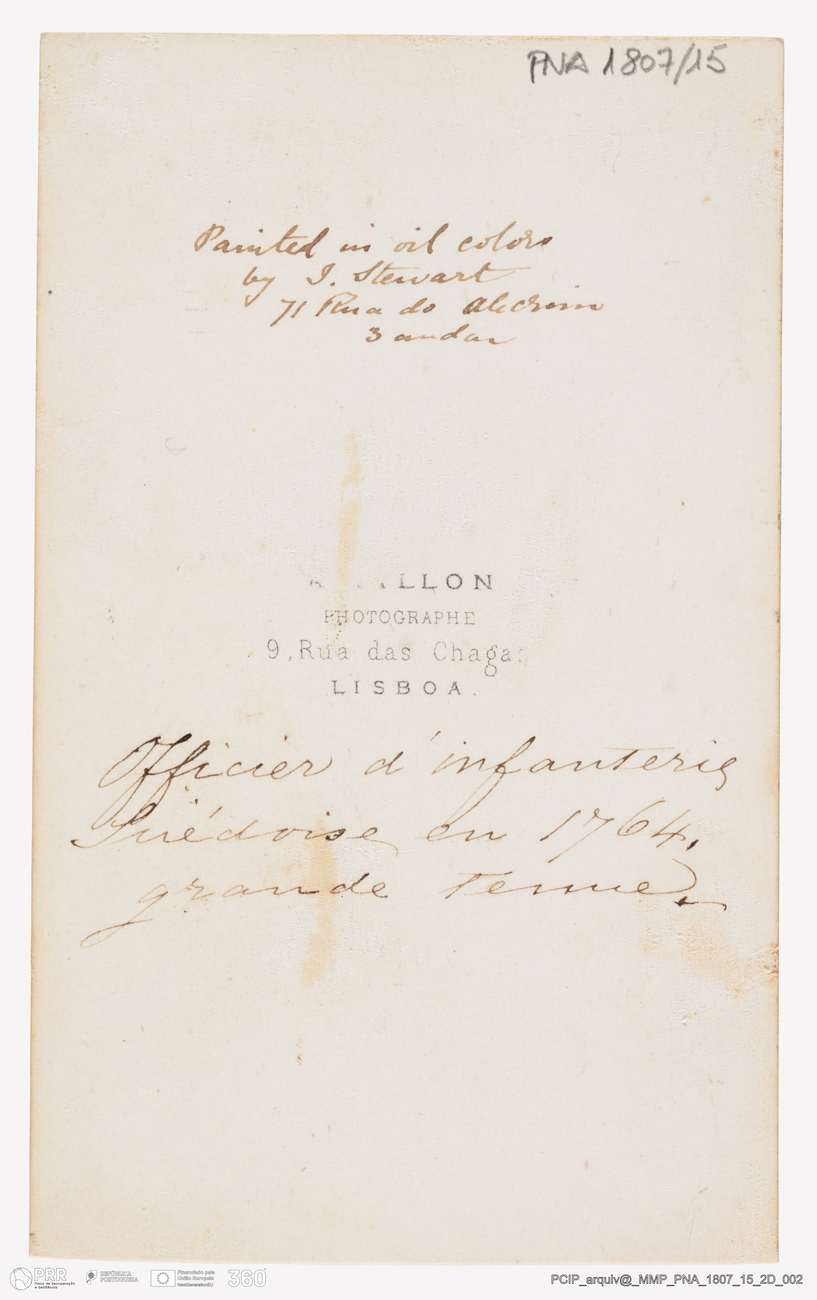 PNA 1807/15
Painted in oil colors
by J. Stewart
71 Rua do Alecrim
3 andar
PHOTOGRAPHE
9, Rua das Chagas
LISBOA.
Officier d'infanterie
Suédoise en 1764,
grande tenue.
PRR
Plano de Recuperação
e Resiliência
REPÚBLICA
PORTUGUESA
Financiado pela
União Europeia
NextGenerationEU
360
PCIP_arquiv@_MMP_PNA_1807_15_2D_002